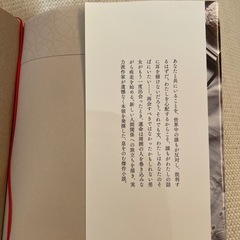 あなたと共にいることを、世界中の誰もが反対し、批判す
るはずだ。わたしを心配するからこそ、誰もがわたしの話
に耳を傾けないだろう。それでも文、わたしはあなたのそ
ばにいたい――。再会すべきではなかったかもしれない男
女がもう一度出会ったとき、運命は周囲の人を巻き込みな
がら疾走を始める。新しい人間関係への旅立ちを描き、実
力派作家が遺憾なく本領を発揮した、息をのむ傑作小説。